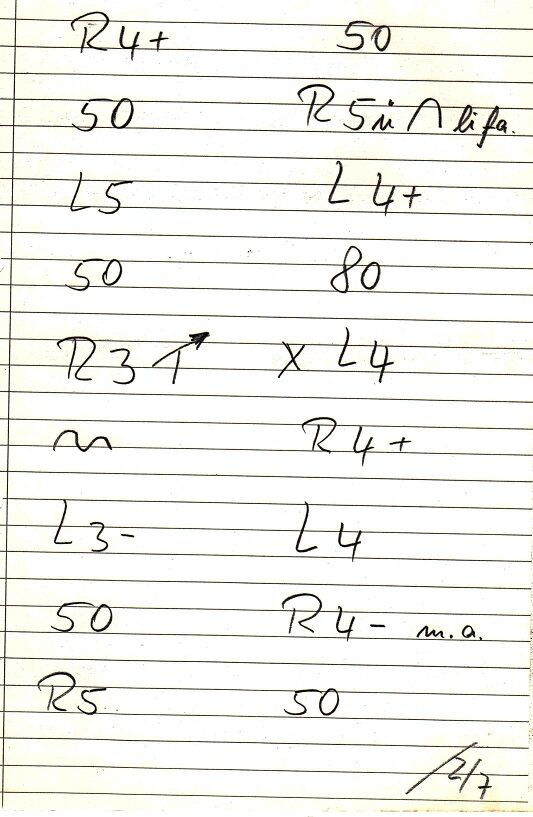 R4+ 50
50 R5 ü ∩ lifa.
L5 L4+
50 80
R3 1 ↗ x L4
~ R4+
L3- L4
50 R4- m.a.
R5 50
2/7